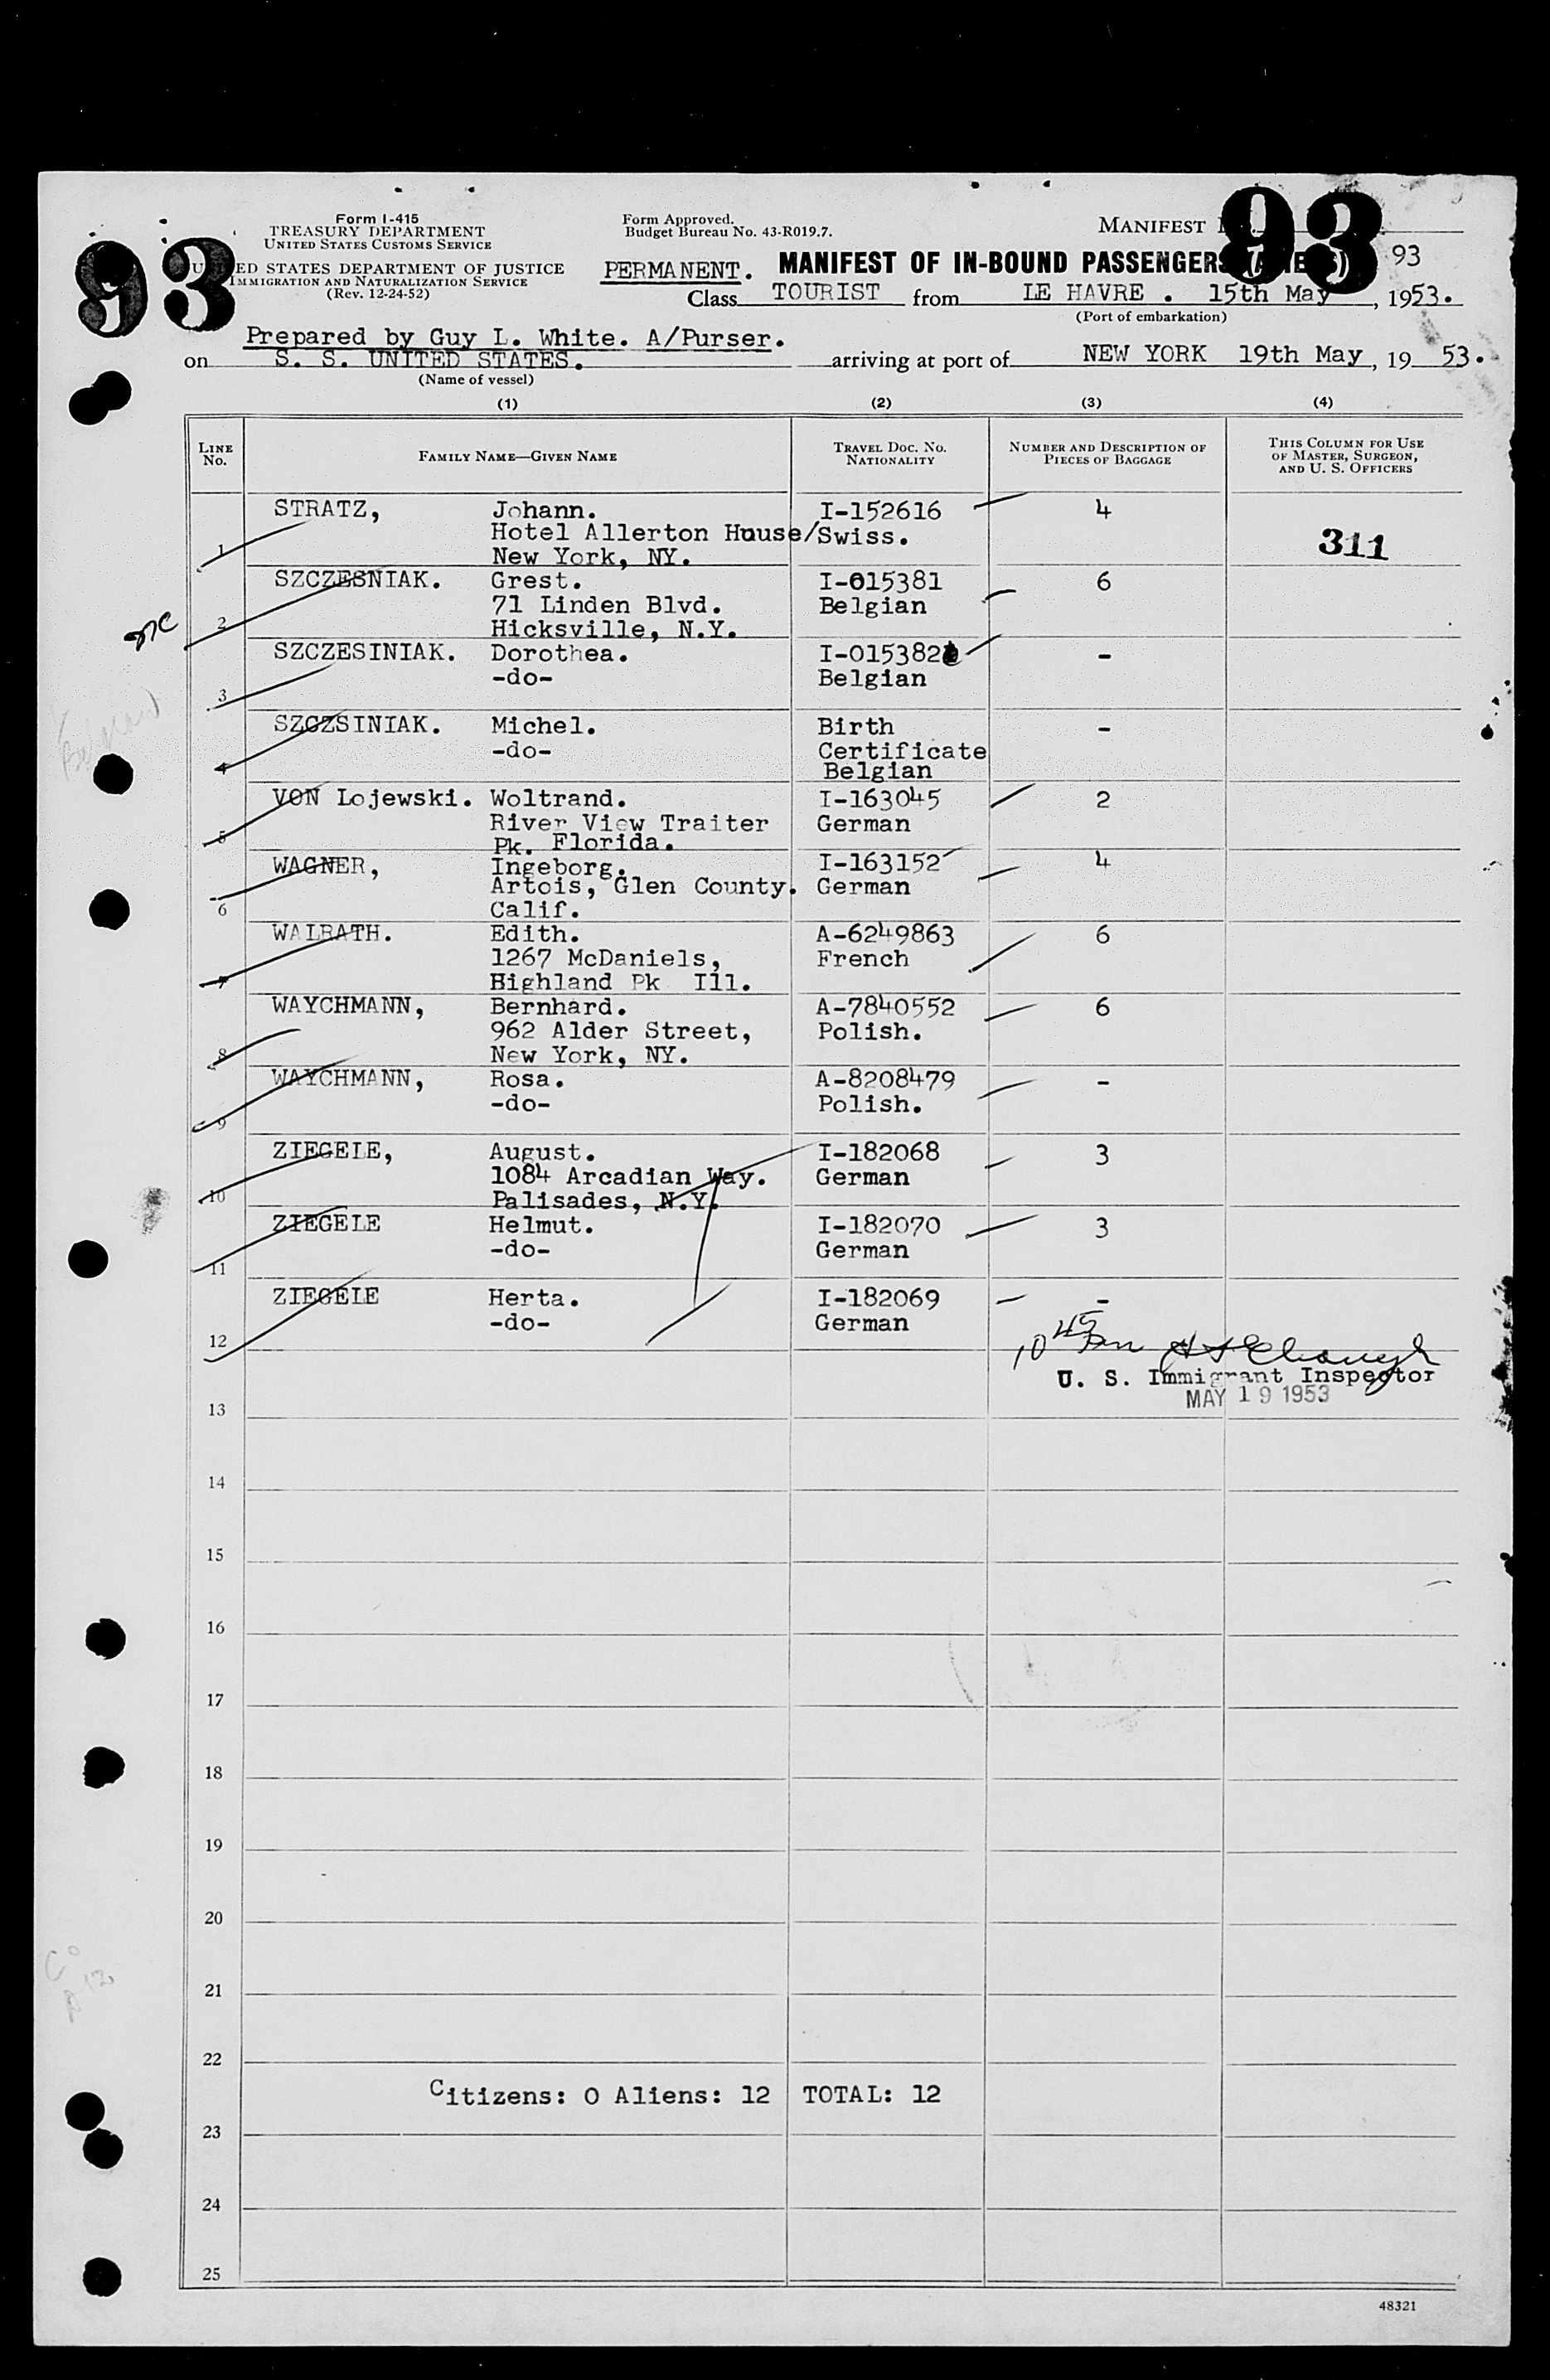 Form I-415
TREASURY DEPARTMENT
UNITED STATES CUSTOMS SERVICE
UNITED STATES DEPARTMENT OF JUSTICE
IMMIGRATION AND NATURALIZATION SERVICE
(Rev. 12-24-52)
Form Approved.
Budget Bureau No. 43-R019.7.
MANIFEST
93
93
93
PERMANENT. MANIFEST OF IN-BOUND PASSENGERS (ALIENS)
Class TOURIST from LE HAVRE . 15th May, 1953.
(Port of embarkation)
Prepared by Guy L. White. A/Purser.
on S. S. UNITED STATES. arriving at port of NEW YORK 19th May, 19 53.
(Name of vessel)
(1) (2) (3) (4)
LINE No. FAMILY NAME—GIVEN NAME TRAVEL DOC. NO. NATIONALITY NUMBER AND DESCRIPTION OF PIECES OF BAGGAGE THIS COLUMN FOR USE OF MASTER, SURGEON, AND U. S. OFFICERS
STRATZ, Johann. I-152616 4
1 Hotel Allerton House/Swiss. 311
New York, NY.
SZCZESNIAK. Grest. I-015381 6
2 71 Linden Blvd. Belgian
Hicksville, N.Y.
SZCZESINIAK. Dorothea. I-015382 -
3 -do- Belgian
SZCZSINIAK. Michel. Birth -
4 -do- Certificate
Belgian
VON Lojewski. Woltrand. I-163045 2
5 River View Traiter German
Pk. Florida.
WAGNER, Ingeborg. I-163152 4
6 Artois, Glen County. German
Calif.
WALRATH. Edith. A-6249863 6
7 1267 McDaniels, French
Highland Pk Ill.
WAYCHMANN, Bernhard. A-7840552 6
8 962 Alder Street, Polish.
New York, NY.
WAYCHMANN, Rosa. A-8208479 -
9 -do- Polish.
ZIEGELE, August. I-182068 3
10 1084 Arcadian Way. German
Palisades, N.Y.
ZIEGELE Helmut. I-182070 3
11 -do- German
ZIEGELE Herta. I-182069 -
12 -do- German
U. S. Immigrant Inspector
MAY 19 1953
13
14
15
16
17
18
19
20
21
22
Citizens: 0 Aliens: 12 TOTAL: 12
23
24
25
48321